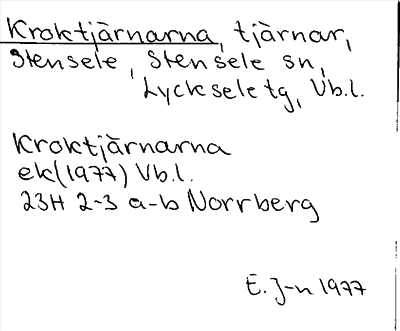 Kroktjärnarna, tjärnar,
Stensele, Stensele sn,
Lycksele tg, Vb.l.
Kroktjärnarna
ek(1977) Vb.l.
23H 2-3 a-b Norrberg
E. J-n 1977